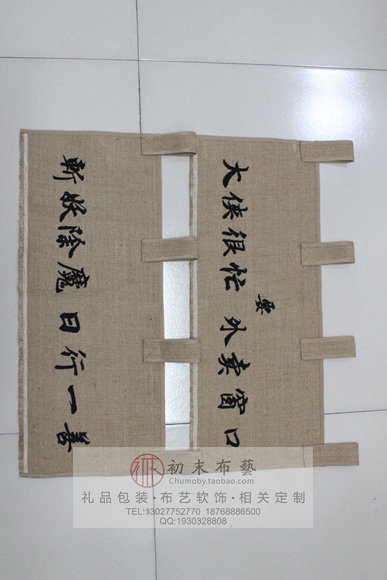 大侠很忙
外卖窗口
斬妖除魔日行一善
初末布藝
Chumoby.taobao.com
礼品包装·布艺软饰·相关定制
TEL:13027752770 18768886500
QQ:1930328808